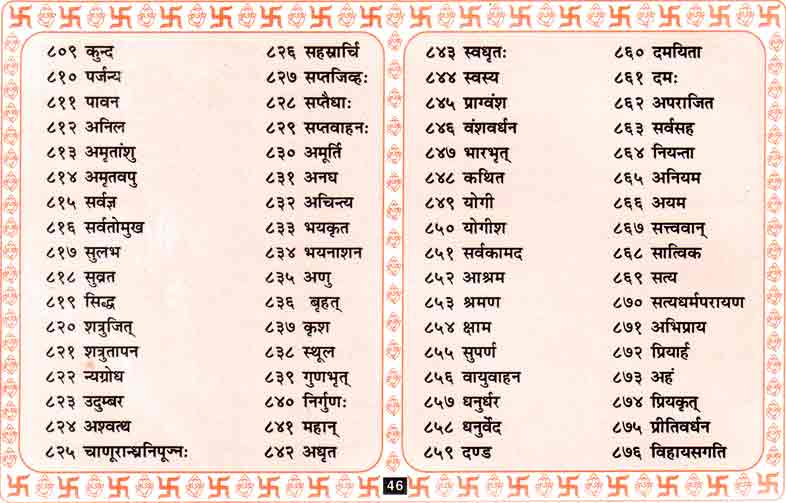 ८०९ कुन्द
८१० पर्जन्य
८११ पावन
८१२ अनिल
८१३ अमृतांशु
८१४ अमृतवपु
८१५ सर्वज्ञ
८१६ सर्वतोमुख
८१७ सुलभ
८१८ सुव्रत
८१९ सिद्ध
८२० शत्रुजित्
८२१ शत्रुतापन
८२२ न्यग्रोध
८२३ उदुम्बर
८२४ अश्वत्थ
८२५
८२६ सहस्रार्चि
८२७ सप्तजिव्हः
८२८ सप्तैधाः
८२९ सप्तवाहनः
८३० अमूर्ति
८३१ अनघ
८३२ अचिन्त्य
८३३ भयकृत
८३४ भयनाशन
८३५ अणु
८३६ बृहत्
८३७ कृश
८३८ स्थूल
८३९ गुणभृत्
८४० निर्गुणः
८४१ महान्
८४२ अधृत
८४३ स्वधृतः
८४४ स्वस्य
८४५ प्राग्वंश
८४६ वंशवर्धन
८४७ भारभृत्
८४८ कथित
८४९ योगी
८५० योगीश
८५१ सर्वकामद
८५२ आश्रम
८५३ श्रमण
८५४ क्षाम
८५५ सुपर्ण
८५६ वायुवाहन
८५७ धनुर्धर
८५८ धनुर्वेद
८५९ दण्ड
८६० दमयिता
८६१ दमः
८६२ अपराजित
८६३ सर्वसह
८६४ नियन्ता
८६५ अनियम
८६६ अयम
८६७ सत्त्ववान्
८६८ सात्विक
८६९ सत्य
८७० सत्यधर्मपरायण
८७१ अभिप्राय
८७२ प्रियार्ह
८७३ अहं
८७४ प्रियकृत्
८७५ प्रीतिवर्धन
८७६ विहायसगति
46